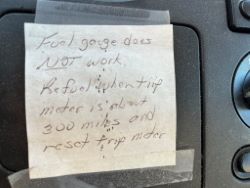 Fuel gauge does
NOT work.
Refuel when trip
meter is about
300 miles and
reset trip meter